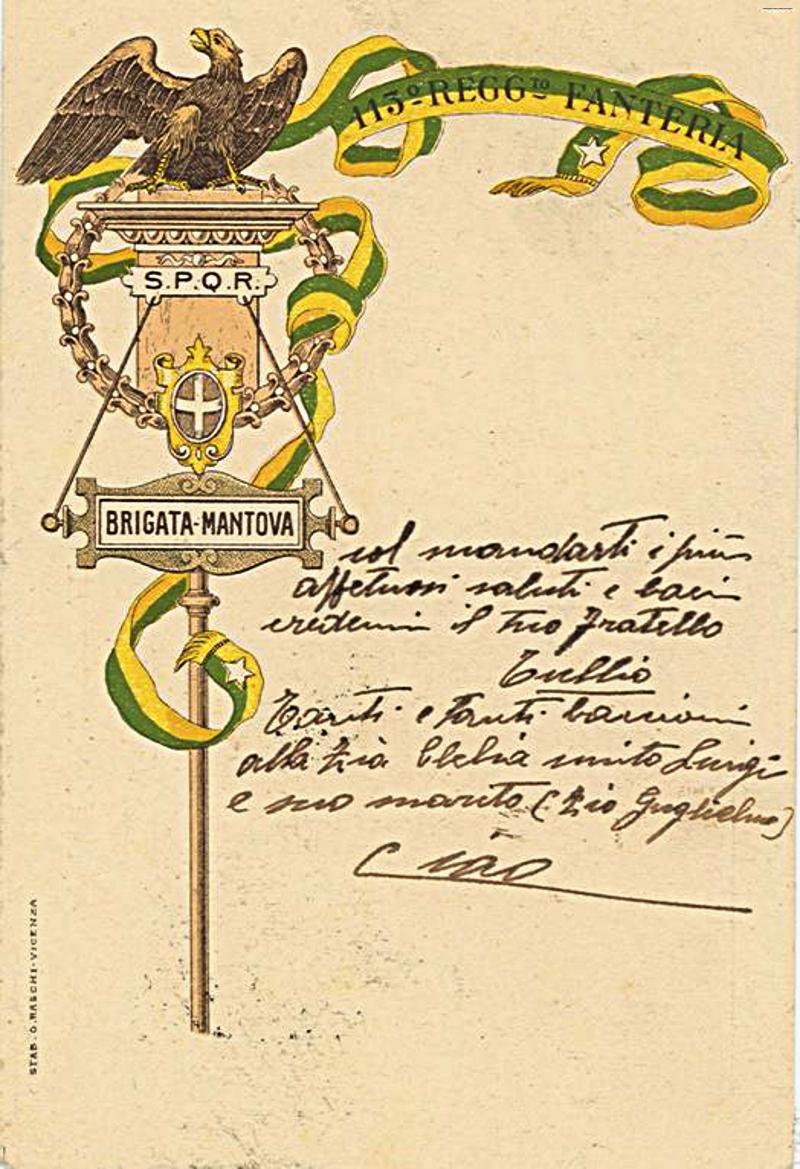 113º REGGTO FANTERIA
S.P.Q.R.
BRIGATA-MANTOVA
col mandarti i più
affettuosi saluti e baci
credemi il tuo fratello
Tullio
Tanti e tanti bacioni
alla zia Clelia unito Luigi
e suo marito (zio Guglielmo)
Ciao
STAB. G. RASCHI-VICENZA